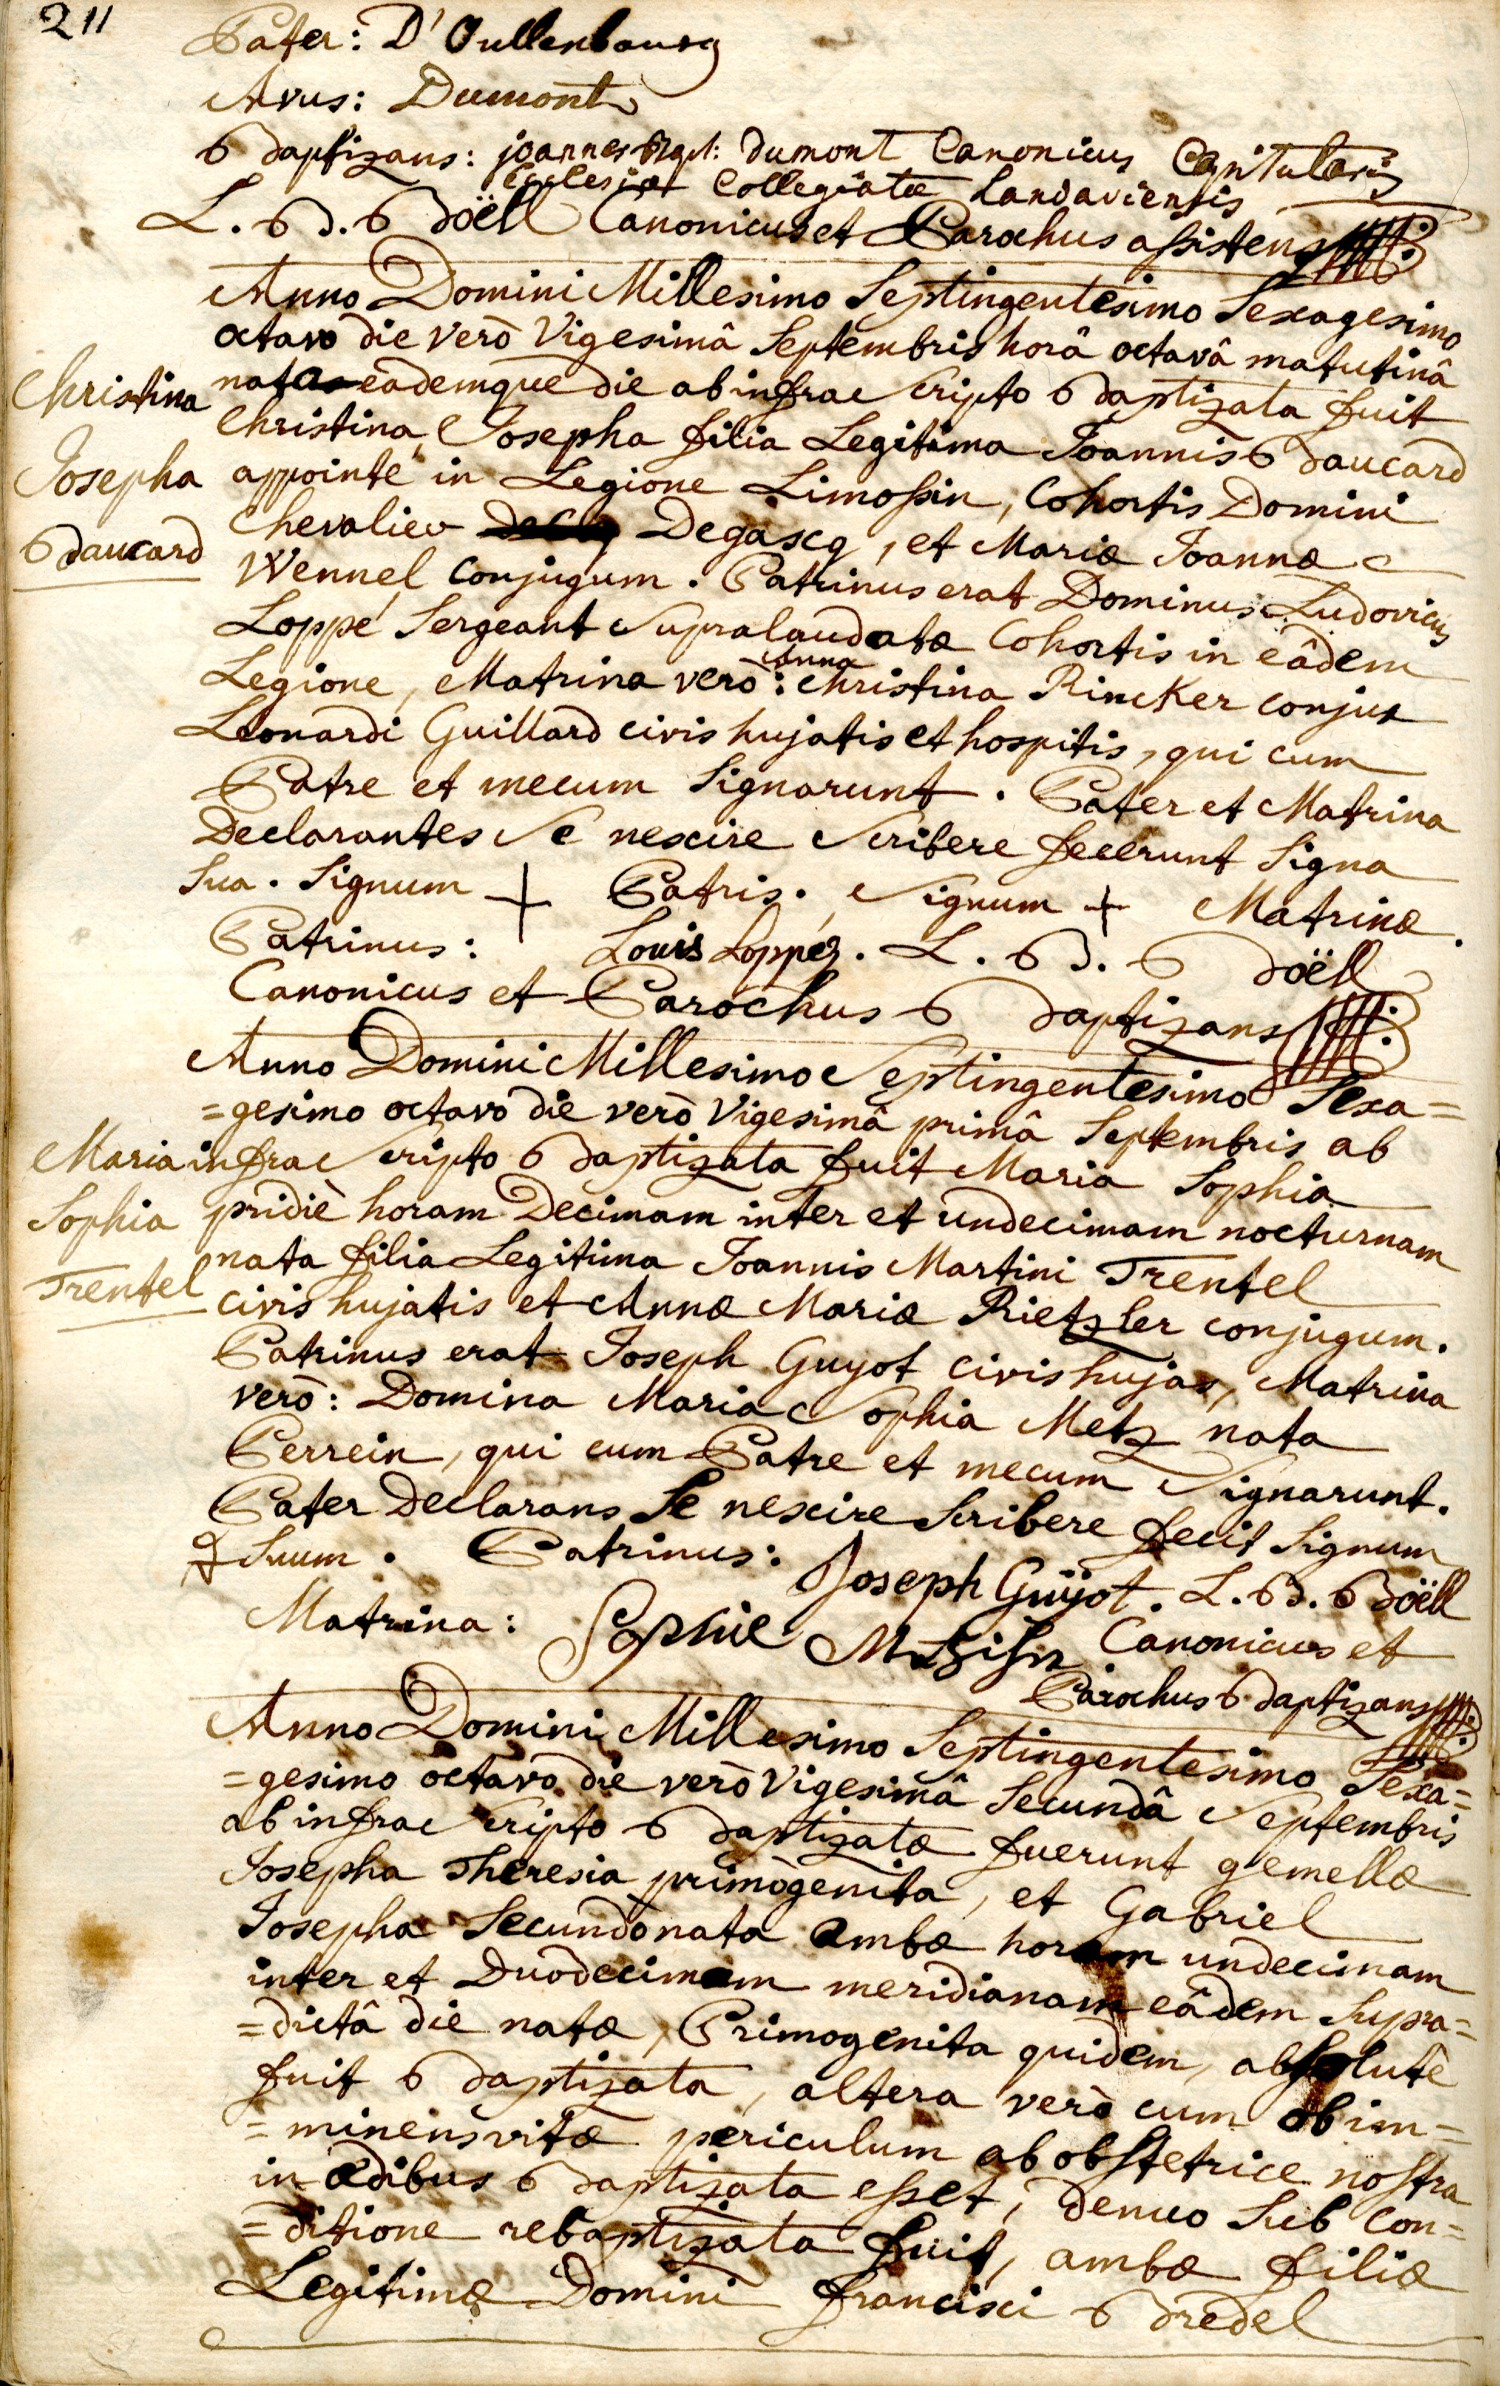 211
Pater: D'Oullenbourg
Avus: Dumont
Baptizans: joannes Bapt: Dumont Canonicus Capitularis
Ecclesiæ Collegiatæ Landaviensis
L. B. Boëll Canonicus et Parochus assistens
Anno Domini Millesimo Septingentesimo Sexagesimo
octavo die verò Vigesimâ Septembris horâ octavâ matutinâ
nata eademque die ab infrascripto Baptizata fuit
Christina Josepha filia Legitima Joannis Baucard
appointé in Legione Limossin, Cohortis Domini
Chevalier Degascq, et Mariæ Joannæ
Wennel conjugum. Patrinus erat Dominus Ludovicus
Loppé Sergeant supralaudatæ Cohortis in eâdem
Legione, Matrina verò: Anna Christina Rincker conjux
Leonardi Guillard civis hujatis et hospitis, qui cum
Patre et mecum Signarunt. Pater et Matrina
Declarantes se nescire scribere fecerunt Signa
Sua. Signum + Patris. Signum + Matrinæ.
Patrinus: Louis Loppez. L. B. Boëll
Canonicus et Parochus Baptizans
Christina
Josepha
Baucard
Anno Domini Millesimo Septingentesimo Sexa=
=gesimo octavo die verò Vigesimâ primâ Septembris ab
infrascripto Baptizata fuit Maria Sophia
pridiè horam Decimam inter et undecimam nocturnam
nata filia Legitima Joannis Martini Trentel
civis hujatis et Annæ Mariæ Rietzler conjugum.
Patrinus erat Joseph Guyot civis hujas, Matrina
verò: Domina Maria Sophia Metz nata
Perrein, qui cum Patre et mecum Signarunt.
Pater Declarans Se nescire Scribere fecit Signum
+ Suum. Patrinus: Joseph Guÿot. L. B. Boëll
Matrina: Sophie Canonicus et
Parochus Baptizans
Maria
Sophia
Trentel
Anno Domini Millesimo Septingentesimo Sexa=
=gesimo octavo die verò Vigesimâ Secundâ Septembris
ab infrascripto Baptizatæ fuerunt gemellæ
Josepha Theresia primògenita, et Gabriel
Josepha Secundonata ambæ horam undecimam
inter et Duodecimam meridianam eâdem supra=
=dictâ die natæ, Primogenita quidem, absolutè
fuit Baptizata, altera verò cum ob im=
=minens vitæ periculum ab obstetrice nostra
in ædibus Baptizata esset, denuo sub con=
=ditione rebaptizata fuit, ambæ filiæ
Legitimæ Domini francisci Bredel